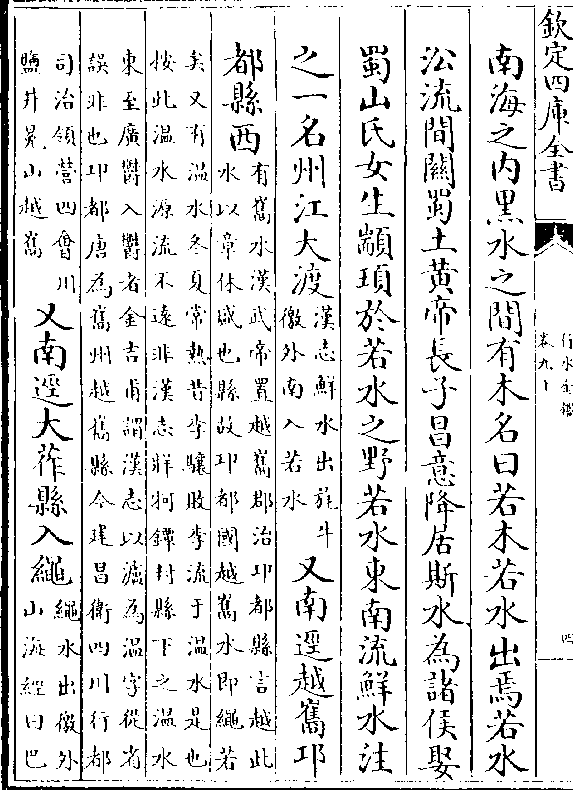 欽定四庫全書
行水金鑑
卷九十
四
南海之内黑水之間有木名曰若木若水出焉若水
沿流間關蜀土黄帝長子昌意降居斯水為諸侯娶
蜀山氏女生顓頊於若水之野若水東南流鮮水注
之一名州江大渡
漢志鮮水出旄牛
徼外南入若水
又南逕越嶲邛
都縣西
有嶲水漢武帝置越嶲郡治邛都縣言越此
水以章休盛也縣故邛都國越嶲水即繩若
矣又有温水冬夏常熱昔李驤敗李流于温水是也
按此温水源流不逺非漢志牂牁鐔封縣下之温水
東至廣鬱入鬱者金吉甫謂漢志以瀘為温字從省
誤非也邛都唐為嶲州越嶲縣今建昌衛四川行都
司治領營四會川
鹽井冕山越嶲
又南逕大莋縣入繩
繩水出徼外
山海經曰巴